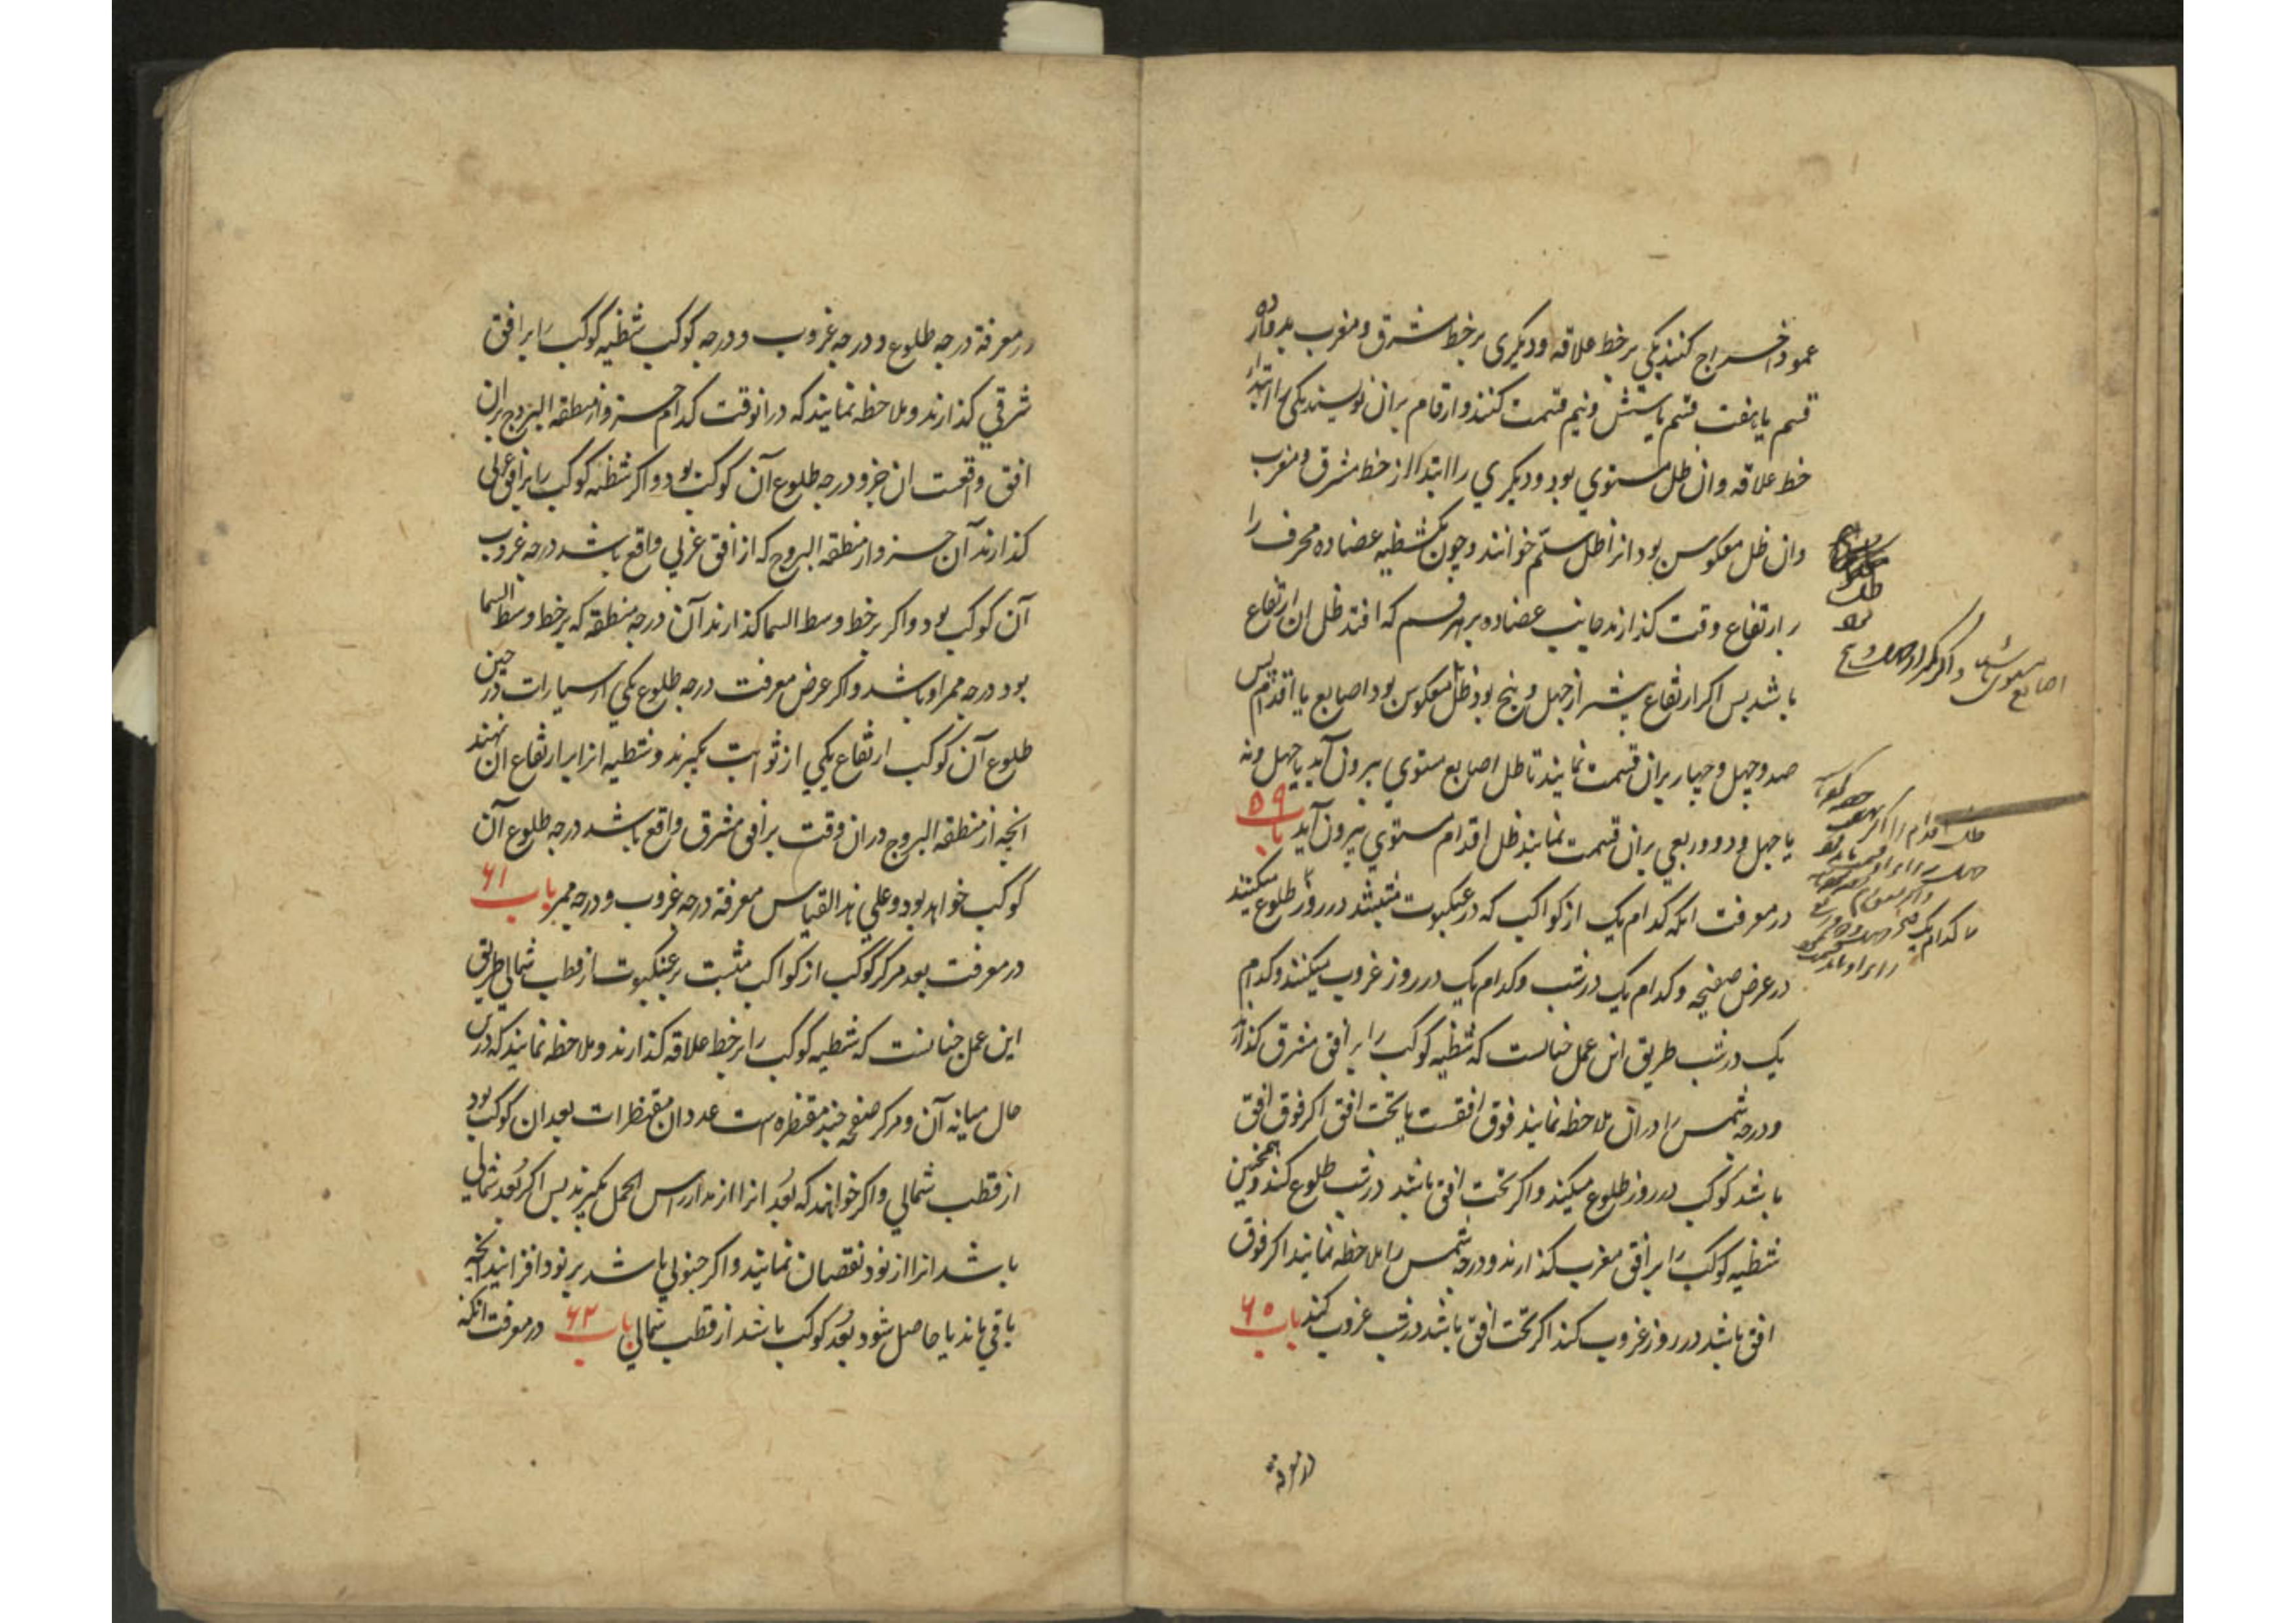 عمود اخراج کنند یکی بر خط علاقه و دیکری بر خط مشرق و مغرب بدوازده
قسم یا هفت قسم یا شش و نیم قسمت کنند و ارقام بران نویسند یکی را ابتدا از
خط علاقه و ان ظل مستوي بود و دیکري را ابتدا از خط مشرق و مغرب
وان ظل معکوس بود انرا ظل سلّم خوانند و چون یک شظیه عضاده محرف را
بر ارتفاع وقت کذارند جانب عضاده بر هر قسم که افتد ظل ان ارتفاع
باشد پس اکر ارتفاع بیشتر از چهل و پنج بود ظل معکوس بود اصابع یا اقدام پس
صد و چهل و چهار بران قسمت نمایند تا ظل اصابع مستوي بیرون آید یا چهل ونه
یا چهل و دو و ربعی بران قسمت نمایند ظل اقدام مستوي بیرون آید باب ۵۹
در معرفت انکه کدام یک از کواکب که در عنکبوت مثبتند در روز طلوع میکنند
در عرض صفیحه و کدام یک در شب و کدام یک در روز غروب میکنند و کدام
یک در شب طریق این عمل چنانست که شظیه کوکب را بر افق مشرق کذارند
و درجه شمس را دران ملاحظه نمایند فوق افقست یا تحت افق اکر فوق افق
باشد کوکب در روز طلوع میکند و اکر تحت افق باشد در شب طلوع کند و همچنین
شظیه کوکب را بر افق مغرب کذارند و درجه شمس را ملاحظه نمایند اکر فوق
افق باشد در روز غروب کند اکر تحت افق باشد در شب غروب کند باب ۶۰
در معرفة
اصابع مستوی باشد و اکر
ظل اقدام را اکر
در معرفة درجه طلوع و درجه غروب و درجه کوکب شظیه کوکب را بر افق
شرقي کذارند و ملاحظه نمایند که درانوقت کدام جزو از منطقه البروج بران
افق واقعست ان جزو درجه طلوع آن کوکب بود و اکر شظیه کوکب را بر افق غربي
کذارند آن جزو از منطقه البروج که از افق غربي واقع باشد درجه غروب
آن کوکب بود و اکر بر خط وسط السما کذارند آن درجه منطقه که بر خط وسط السما
بود درجه ممر او باشد و اکر عرض معرفت درجه طلوع یکي از سیارات در حین
طلوع آن کوکب ارتفاع یکي از ثوابت بکیرند و شظیه انرا بر ارتفاع ان نهند
انچه از منطقه البروج دران وقت بر افق مشرق واقع باشد درجه طلوع آن
کوکب خواهد بود و علي هذا القیاس معرفة درجه غروب و درجه ممر باب ۶۱
در معرفت بعد مرکز کوکب از کواکب مثبت بر عنکبوت از قطب شمالي طریق
این عمل چنانست که شظیه کوکب را بر خط علاقه کذارند و ملاحظه نمایند که درین
حال میانه آن و مرکز صفحه چند مقنطره است عدد ان مقنطرات بعد ان کوکب بود
از قطب شمالي و اکر خواهند که بُعد انرا از مدار راس الحمل بکیرند پس اکر بُعد شمالي
باشد انرا از نود نقصان نمایند و اکر جنوبي باشد بر نود افزایند انچه
باقي ماند یا حاصل شود بُعد کوکب باشد از قطب شمالي باب ۶۲ در معرفت انکه